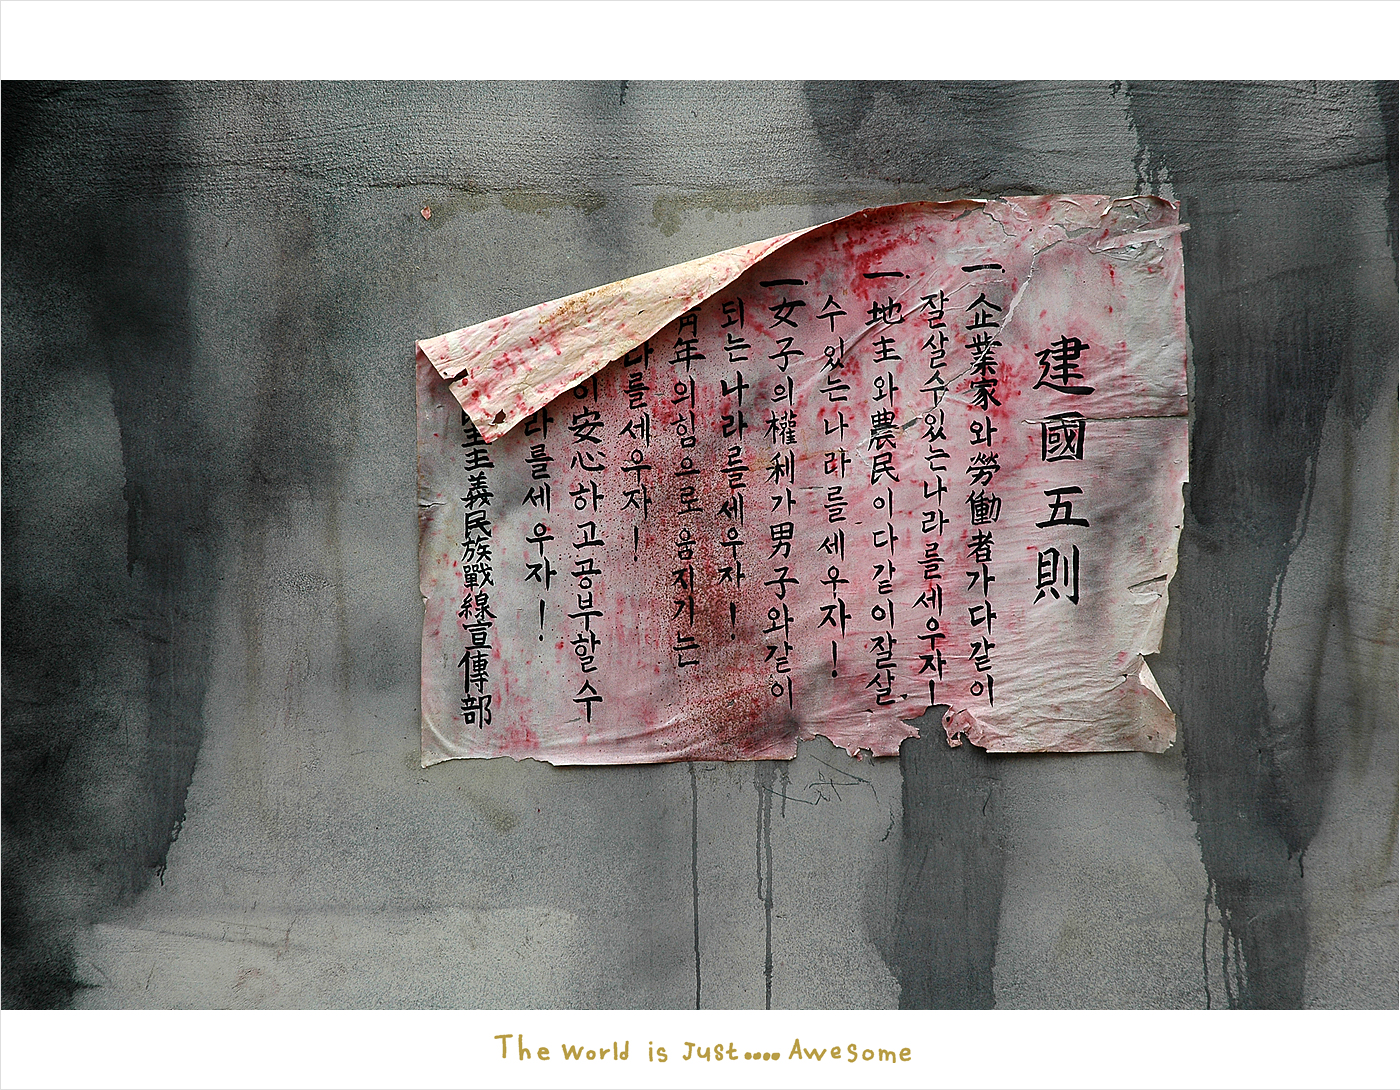 建國五則
一企業家와勞働者가다같이
잘살수있는나라를세우자!
一地主와農民이다같이잘살
수있는나라를세우자!
一女子의權利가男子와같이
되는나라를세우자!
靑年의힘으로움직이는
나라를세우자!
이安心하고공부할수
라를세우자!
主主義民族戰線宣傳部
The world is Just.... Awesome